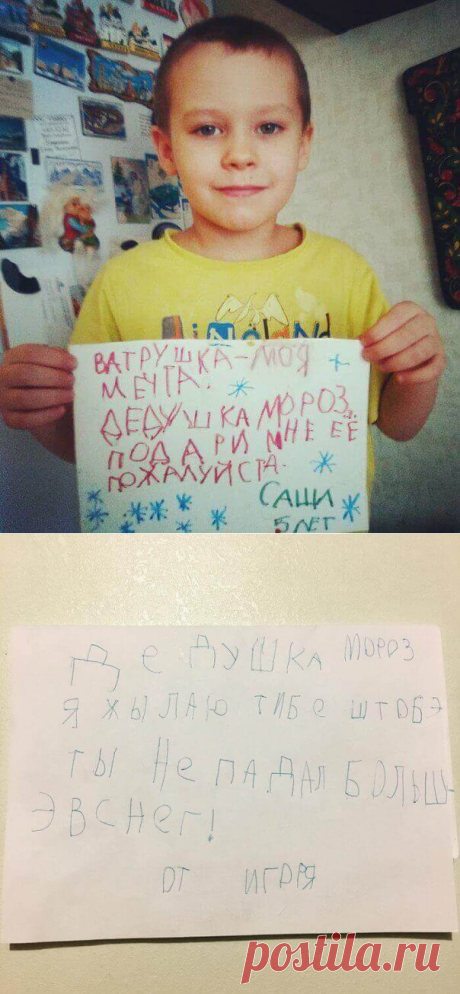 ВАТРУШКА-МОЯ
МЕЧТА.
ДЕДУШКА МОРОЗ,
ПОДАРИ МНЕ ЕЁ
ПОЖАЛУЙСТА.
САШИ
5 ЛЕТ
ДеДУШКА МОРОЗ
Я ЖЫЛАЮ ТИБе ШТОБЭ
ТЫ Не ПАДАЛ БОЛЬШ
ЭВСНег!
ОТ ИГРРЯ
postila.ru